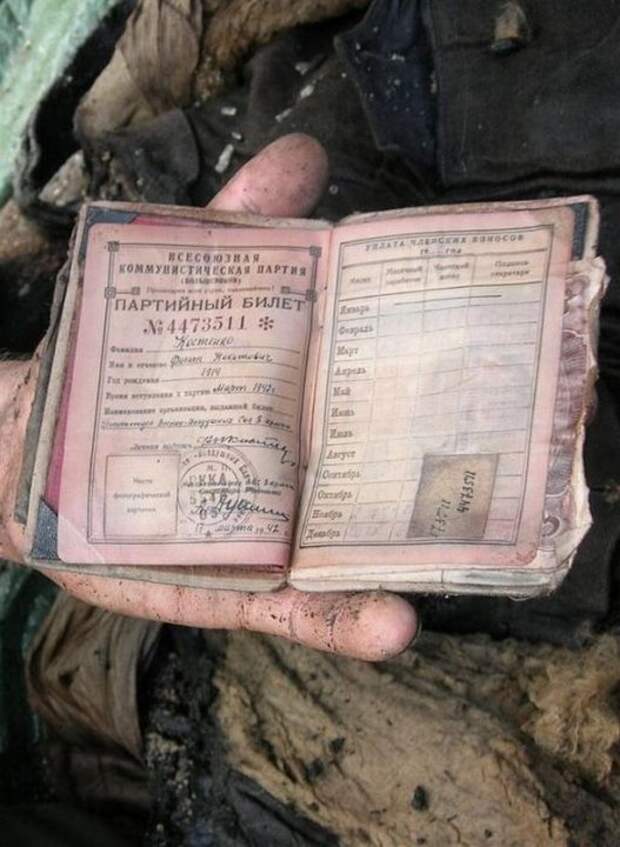 ВСЕСОЮЗНАЯ
КОММУНИСТИЧЕСКАЯ ПАРТИЯ
(БОЛЬШЕВИКОВ)
Пролетарии всех стран, соединяйтесь!
ПАРТИЙНЫЙ БИЛЕТ
№ 4473511 *
Фамилия Костенко
Имя и отчество Никитович
Год рождения 1914
Время вступления в партию Март 1942 г.
Наименование организации, выдавшей билет
Личная подпись
Место
фотографической
карточки
М. П.
РККА
17 марта 1942 г.
УПЛАТА ЧЛЕНСКИХ ВЗНОСОВ
19 ГОД
Месяц
Месячный заработок
Членский взнос
Подпись секретаря
Январь
Февраль
Март
Апрель
Май
Июнь
Июль
Август
Сентябрь
Октябрь
Ноябрь
Декабрь
4473511